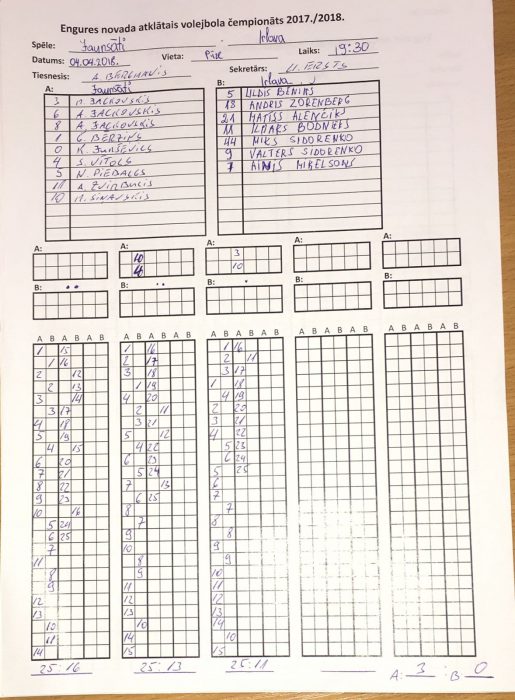 Engures novada atklātais volejbola čempionāts 2017./2018.
Spēle: Jaunsāti - Irlava
Datums: 04.04.2018. Vieta: Pūre Laiks: 19:30
Tiesnesis: A. BERGMANIS Sekretārs: U. ERSTS
A: Jaunsāti
3 M. JACKOVSKIS
6 A. JACKOVSKIS
8 A. JACKOVSKIS
1 G. BĒRZIŅŠ
0 K. JUNŠEVICS
4 S. VĪTOLS
5 N. PIEDALGS
11 A. ZVIRBULIS
10 M. SINAVSKIS
B: Irlava
5 ULDIS BENIKS
18 ANDRIS ZORENBERG
21 MATĪSS ALENČIKS
11 ILMARS BODNIEKS
44 NIKS SIDORENKO
9 VALTERS SIDORENKO
7 AINIS MIĶELSONS
A: A: A: A: A:
10 3
4 10
B: B: B: B: B:
A B A B A B A B A B A B A B A B A B A B A B A B A B A B A B
1 15 1 16 1 16
1 16 2 17 2 11
2 12 3 18 3 17
2 13 1 19 1 18
3 14 4 20 4 19
3 17 2 11 2 20
4 18 3 21 3 21
5 19 5 12 4 22
4 15 4 22 5 23
6 20 6 23 6 24
7 21 5 24 5 25
8 22 7 13 6
9 23 6 25 7
10 16 8 7
5 24 7 8
6 25 9 8
7 10 9
11 8 9
8 9 10
9 11 11
12 12 12
13 13 13
10 10 14
11 14 10
14 15 15
25:16 25:13 25:11 A: 3 : B 0